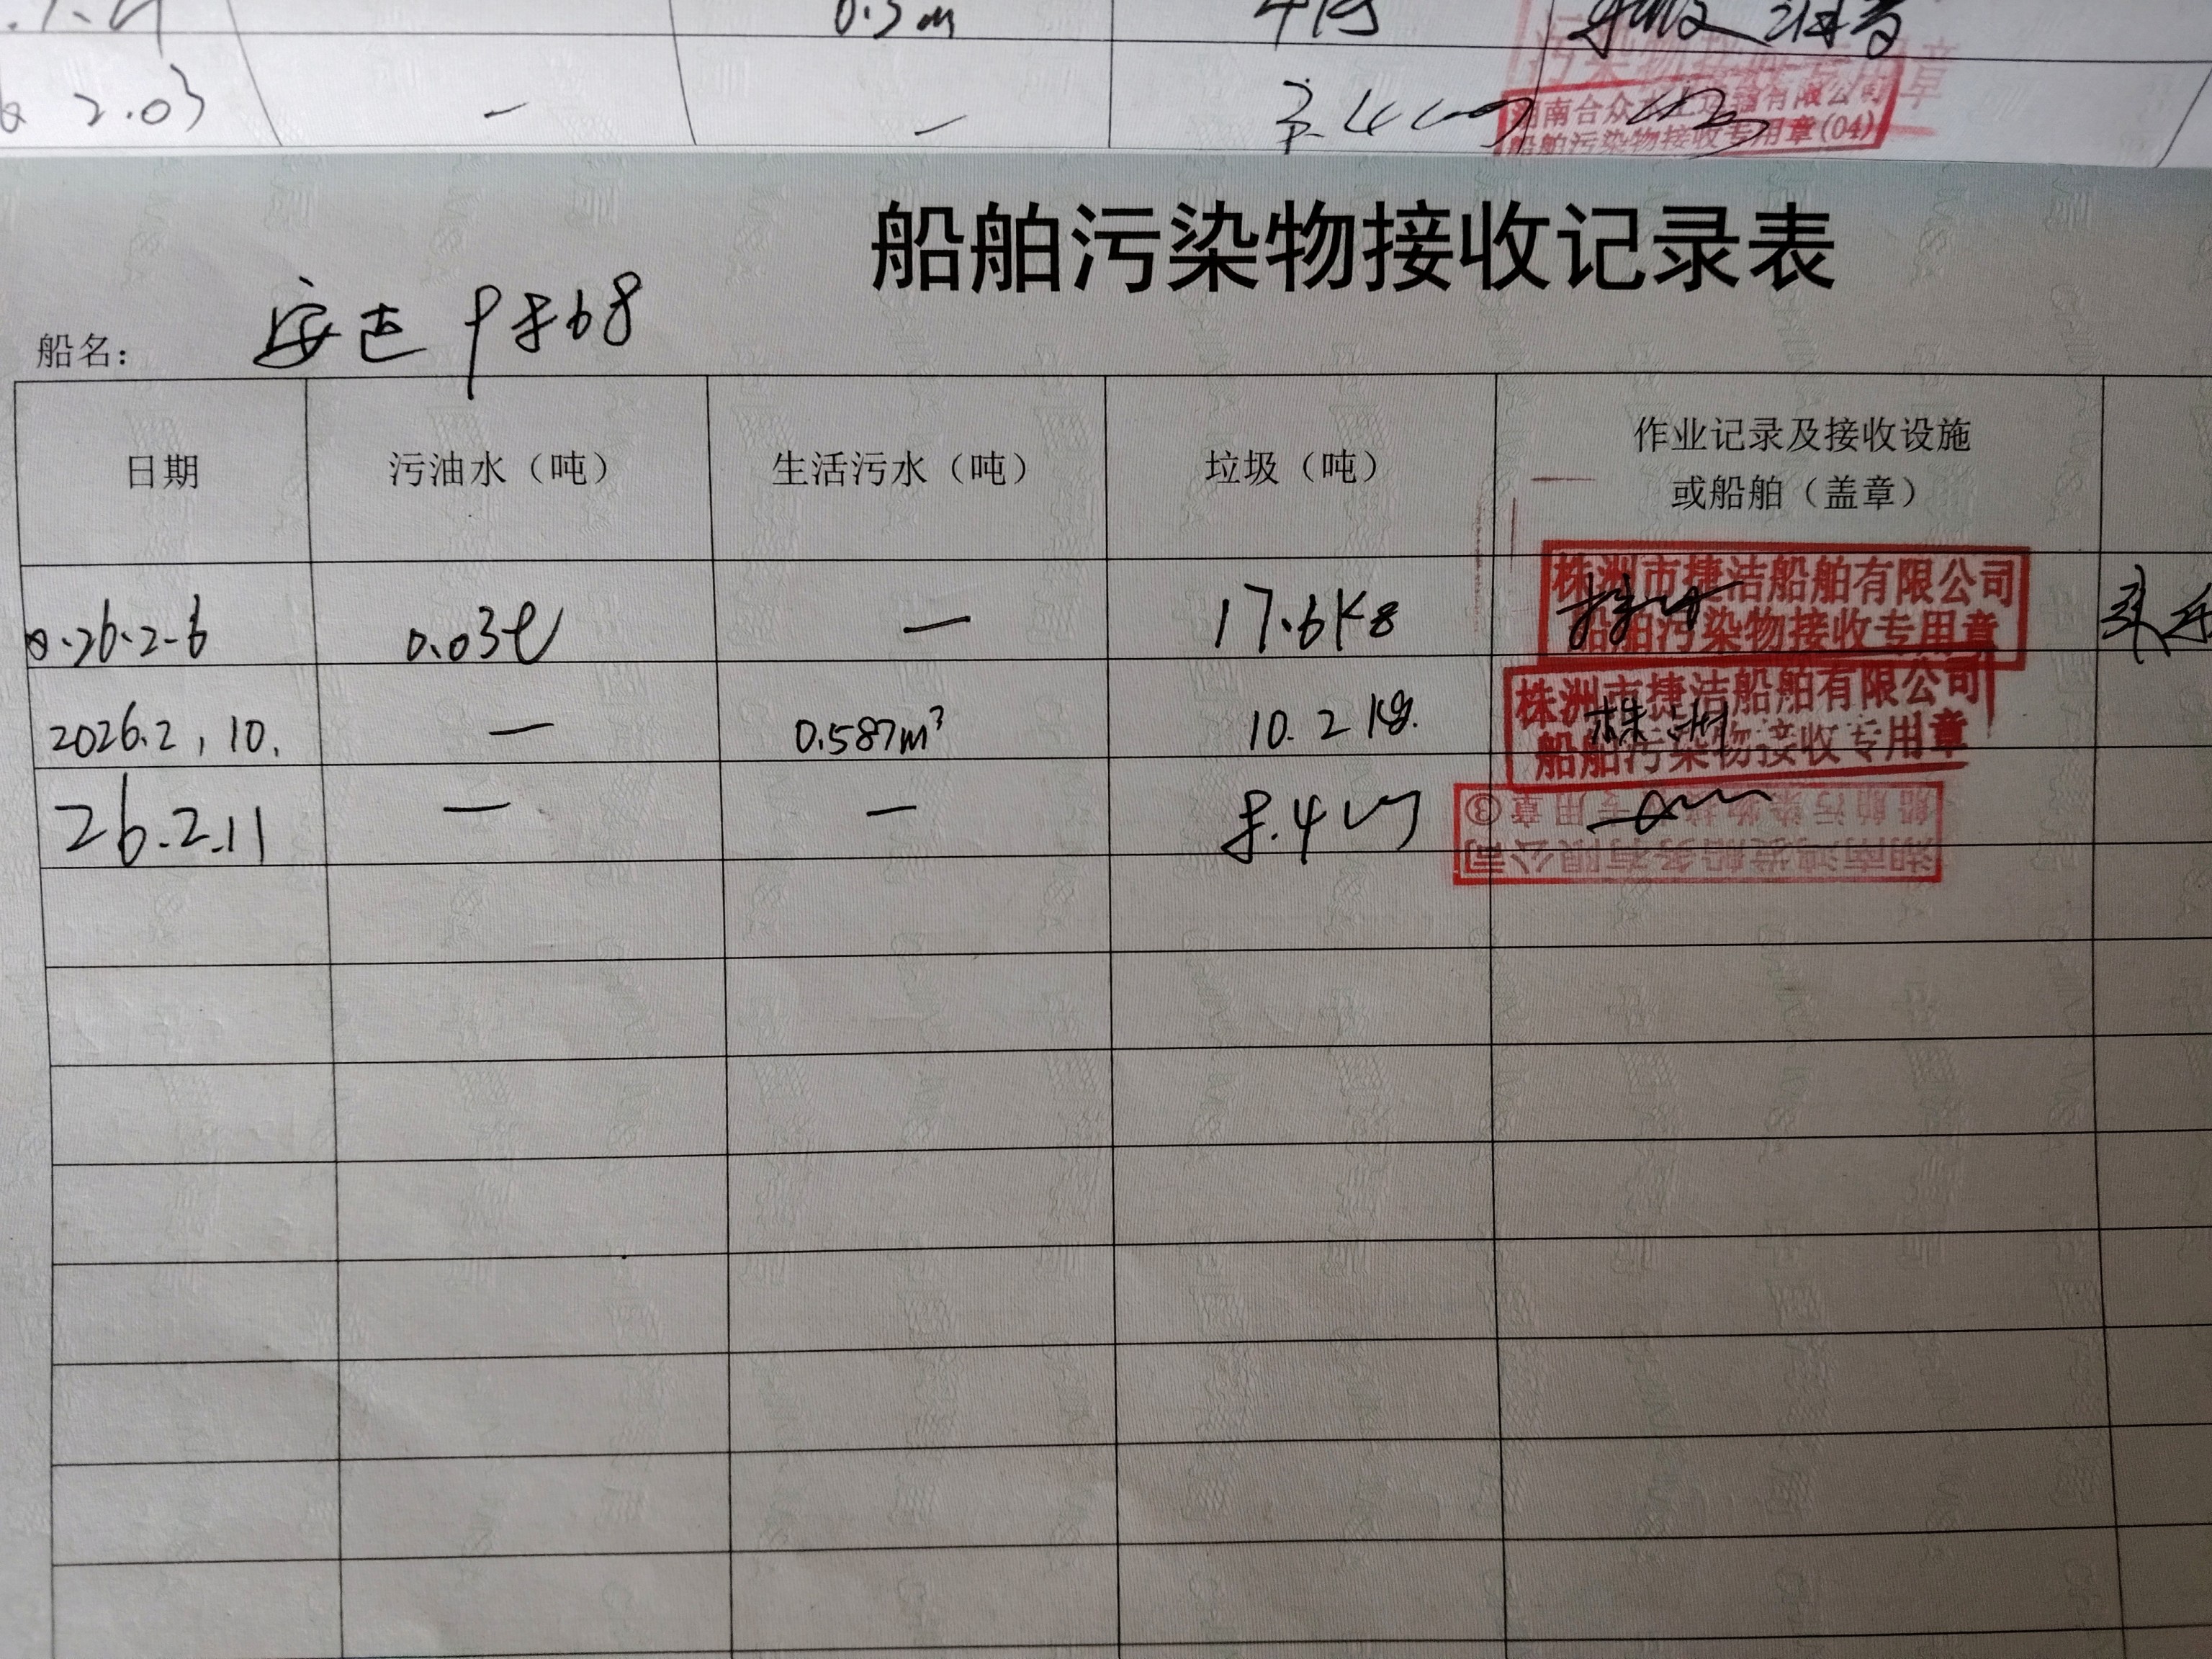 0.3m
2.03 — —
湖南合众水上运输有限公司
船舶污染物接收专用章(04)
船舶污染物接收记录表
船名:
日期 污油水（吨） 生活污水（吨） 垃圾（吨） 作业记录及接收设施
或船舶（盖章）
26.2-6 0.03t — 17.6kg
株洲市捷洁船舶有限公司
船舶污染物接收专用章
2026.2.10. — 0.587m³ 10.2kg. 株洲
株洲市捷洁船舶有限公司
船舶污染物接收专用章
26.2.11 — — 8.4
湖南鸿发船务有限公司
船舶污染物接收专用章③